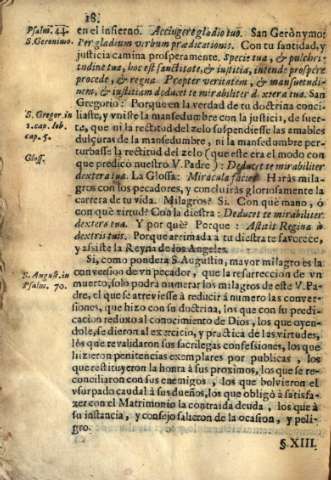 18.
Psalm. 44.
S. Geronimo.
en el infierno. Accingere gladio tuo. San Geronymo:
Per gladium verbum prædicationis. Con tu santidad, y
justicia camina prosperamente. Specie tua, & pulchri-
tudine tua, hoc est sanctitate, & iustitia, intende prosperè
procede, & regna. Propter veritatem, & mansuetudi-
nem, & iustitiam deducet te mirabiliter dextera tua. San
S. Gregor. in
1. cap. Iob.
cap. 5.
Gregorio: Porque en la verdad de tu doctrina conci-
liaste, y vniste la mansedumbre con la justicia, de suer-
te, que ni la rectitud del zelo suspendiesse las amables
dulçuras de la mansedumbre, ni la mansedumbre per-
turbasse la rectitud del zelo (que este era el modo con
que predicò nuestro V. Padre): Deducet te mirabiliter
Gloss.
dextera tua. La Glossa: Miracula faciens. Haràs mila-
gros con los pecadores, y concluiràs gloriosamente la
carrera de tu vida. Milagros? Si. Con què mano, ò
con què virtud? Con la diestra: Deducet te mirabiliter
dextera tua. Y por què? Porque: Astitit Regina à
dextris tuis. Porque arrimada à tu diestra te favorece,
y assiste la Reyna de los Angeles.
S. August. in
Psalm. 70.
Si, como pondera S. Augustin, mayor milagro es la
conversion de vn pecador, que la resurreccion de vn
muerto, solo podrà numerar los milagros de este V. Pa-
dre, el que se atreviesse à reducir à numero las conver-
siones, que hizo con su doctrina, los que con su predi-
cacion reduxo al conocimiento de Dios, los que oyen-
dole, se dieron al exercicio, y practica de las virtudes,
los que revalidaron sus sacrilegas confessiones, los que
hizieron penitencias exemplares por publicas, los que
que restituyeron la honra à sus proximos, los que se re-
conciliaron con sus enemigos, los que bolvieron el
vsurpado caudal à sus dueños, los que obligò à satisfa-
zer con el Matrimonio la contraida deuda, los que à
su instancia, y consejo salieron de la ocasion, y peli-
gro.
§ XIII.